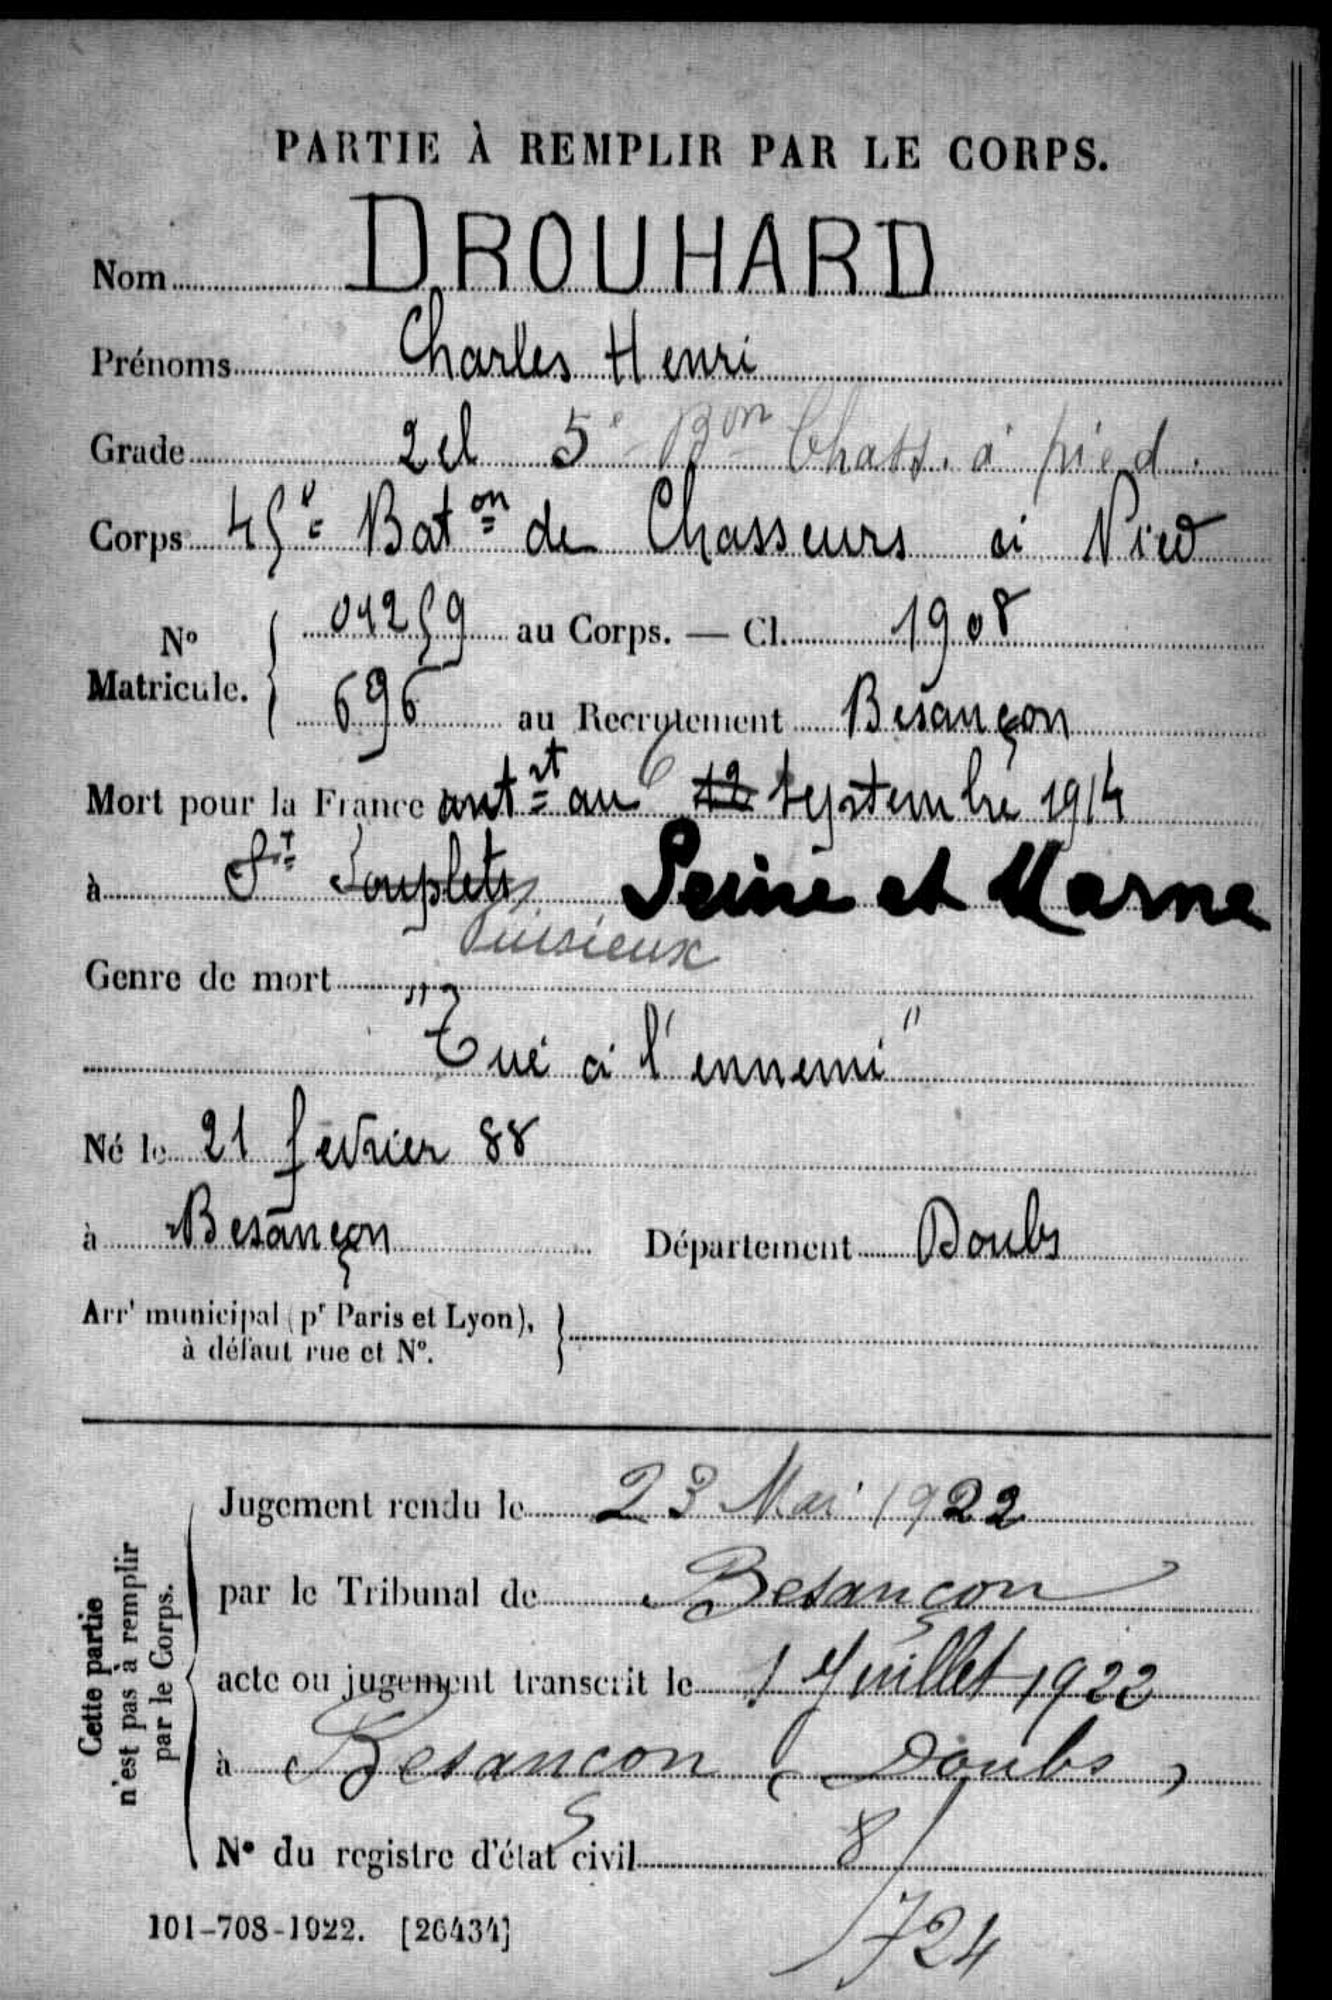 PARTIE À REMPLIR PAR LE CORPS.
Nom DROUHARD
Prénoms Charles Henri
Grade 2el 5e Bon Chass. à pied.
Corps 45e Baton de Chasseurs à Pied
No Matricule. { 04259 au Corps. — Cl. 1908
696 au Recrutement Besançon
Mort pour la France antrt au 6 12 Septembre 1914
à St Souplets Seine et Marne
Puisieux
Genre de mort
"Tué à l'ennemi"
Né le 21 février 88
à Besançon Département Doubs
Arrt municipal (pr Paris et Lyon),
à défaut rue et No. }
Cette partie
n'est pas à remplir
par le Corps.
Jugement rendu le 23 Mai 1922
par le Tribunal de Besançon
acte ou jugement transcrit le 1 Juillet 1922
à Besançon (Doubs)
No du registre d'état civil 8/
724
101-708-1922. [26434]